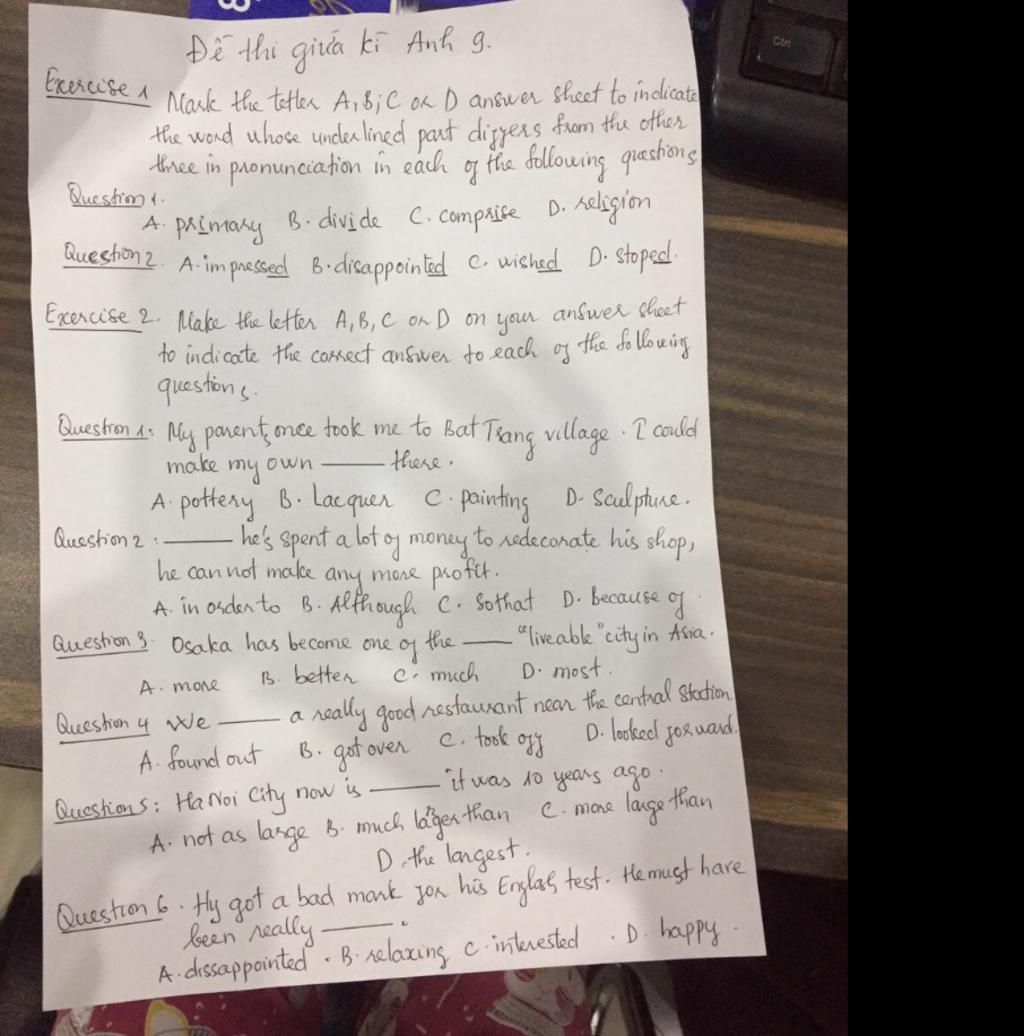 Đề thi giữa kì Anh 9.
Exercise 1 Mark the tetter A, B, C or D answer sheet to indicate
the word whose underlined part differs from the other
three in pronunciation in each of the following questions
Question 1.
A. primary B. divide C. comprise D. religion
Question 2. A. impressed B. disappointed C. wished D. stoped.
Exercise 2. Make the letter A, B, C or D on your answer sheet
to indicate the correct answer to each of the following
questions.
Question 1: My parents once took me to Bat Trang village. I could
make my own ____ there.
A. pottery B. Lacquer C. painting D. Sculpture.
Question 2: ____ he's spent a lot of money to redecorate his shop,
he cannot make any more profit.
A. in order to B. Although C. So that D. Because of.
Question 3. Osaka has become one of the ____ "liveable" city in Asia.
A. more B. better C. much D. most.
Question 4 We ____ a really good restaurant near the central Station
A. found out B. got over C. took off D. looked forward.
Question 5: Ha Noi City now is ____ it was 10 years ago.
A. not as large B. much larger than C. more large than
D. the largest.
Question 6. Hy got a bad mark for his English test. He must have
been really ____.
A. dissappointed. B. relaxing C. interested. D. happy.
Ctrl